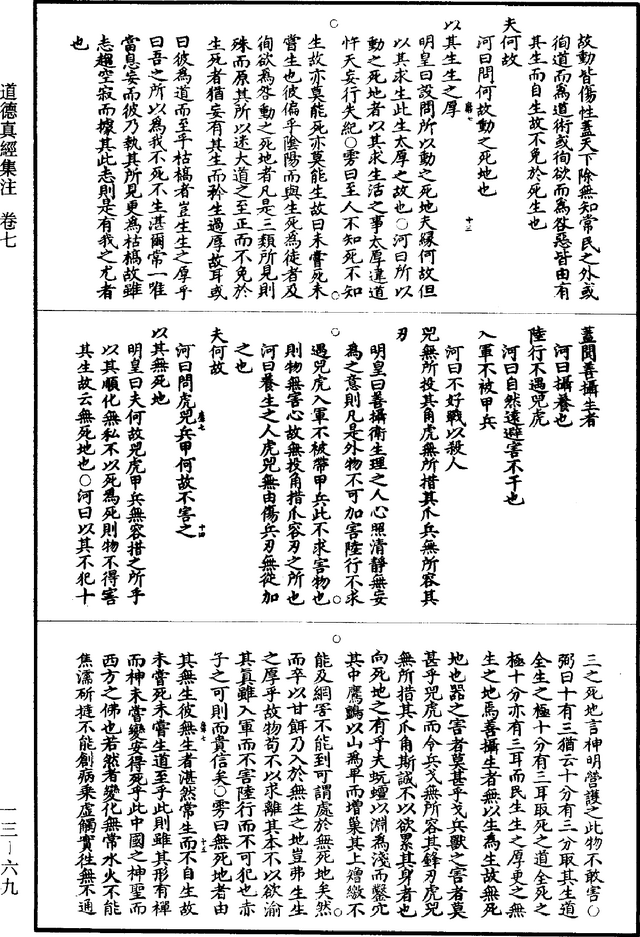 道德真經集注　卷七
一三—六九
故動皆傷性蓋天下除無知常民之外或
徇道而為道術或徇欲而為欲惡皆由有
其生而自生故不免於死生也
夫何故
河曰問何故動之死地也
以其生生之厚
明皇曰設問所以動之死地夫緣何故但
以其求生此生太厚之故也○河曰所以
動之死地者以其求生活之事太厚違道
忤天妄行失紀○雱曰至人不知死不知
生故亦莫能死亦莫能生故曰未嘗死未
嘗生也彼偏乎陰陽而與生死為徒者及
徇欲為咎動之死地者凡是三類所見則
殊而原其所以迷大道之至正而不免於
生死者猶妄有其生而矜生過厚故耳或
曰彼為道而至乎枯槁者豈生生之厚乎
曰吾之所以為我不死不生湛爾常一唯
當息妄而彼乃執其所見更為枯槁故雖
志趨空寂而據其此志則是有我之尤者
也
蓋聞善攝生者
河曰攝養也
陸行不遇兕虎
河曰自然遠避害不干也
入軍不被甲兵
河曰不好戰以殺人
兕無所投其角虎無所措其爪兵無所容其
刃
明皇曰善攝衛生理之人心照清靜無妄
為之意則凡是外物不可加害陸行不求
遇兕虎入軍不被帶甲兵此不求害物也
則物無害心故無投角措爪容刃之所也
河曰養生之人虎兕無由傷兵刃無從加
之也
夫何故
河曰問虎兕兵甲何故不害之
以其無死地
明皇曰夫何故兕虎甲兵無容措之所乎
以其順化無私不以死為死則物不得害
其生故云無死地也○河曰以其不犯十
三之死地言神明營護之此物不敢害○
弼曰十有三猶云十分有三分取其生道
全生之極十分有三耳取死之道全死之
極十分亦有三耳而民生生之厚更之無
生之地焉善攝生者無以生為生故無死
地也器之害者莫甚乎戈兵獸之害者莫
甚乎兕虎而令兵戈無所容其鋒刃虎兕
無所措其爪角斯誠不以欲累其身者也
何死地之有乎夫蚖蟺以淵為淺而鑿穴
其中鷹鸇以山為卑而增巢其上矰繳不
能及網罟不能到可謂處於無死地矣然
而卒以甘餌乃入於無生之地豈弗生生
之厚乎故物苟不以求離其本不以欲渝
其真雖入軍而不害陸行而不可犯也赤
子之可則而貴信矣○雱曰無死地者由
其無生彼無生者湛然常生而不自生故
未嘗死未嘗生道至乎此則雖其形有禪
而神未嘗變安得死乎此中國之神聖而
西方之佛也若然者變化無常水火不能
焦濡斫撻不能創病乘虛觸實往無不通